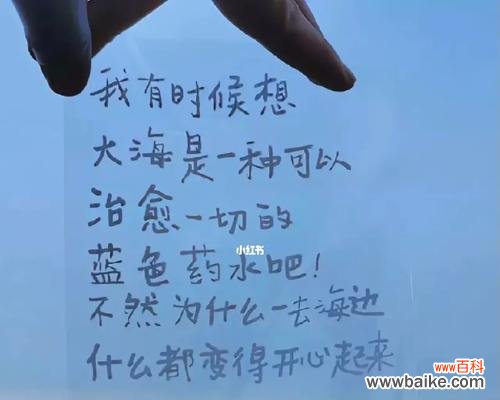 我有时候想
大海是一种可以
治愈一切的
小红书
蓝色药水吧！
不然为什么一去海边
什么都变得开心起来
www百科
www.baike.com